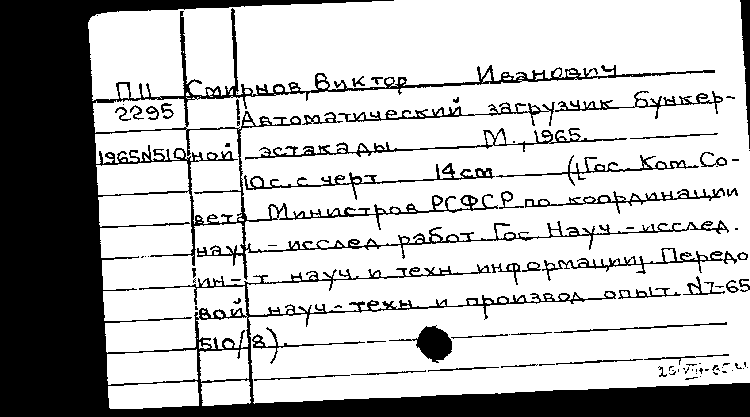 П11 Смирнов, Виктор Иванович
2295 Автоматический загрузчик бункер-
1965N510 ной эстакады. М., 1965.
10с. с черт 14см ([Гос. Ком. Со-
вета Министров РСФСР по координации
науч. - исслед. работ. Гос Науч. - исслед.
ин-т науч. и техн информации]. Передо
вой науч - техн и производ опыт. N7-65
510/8).